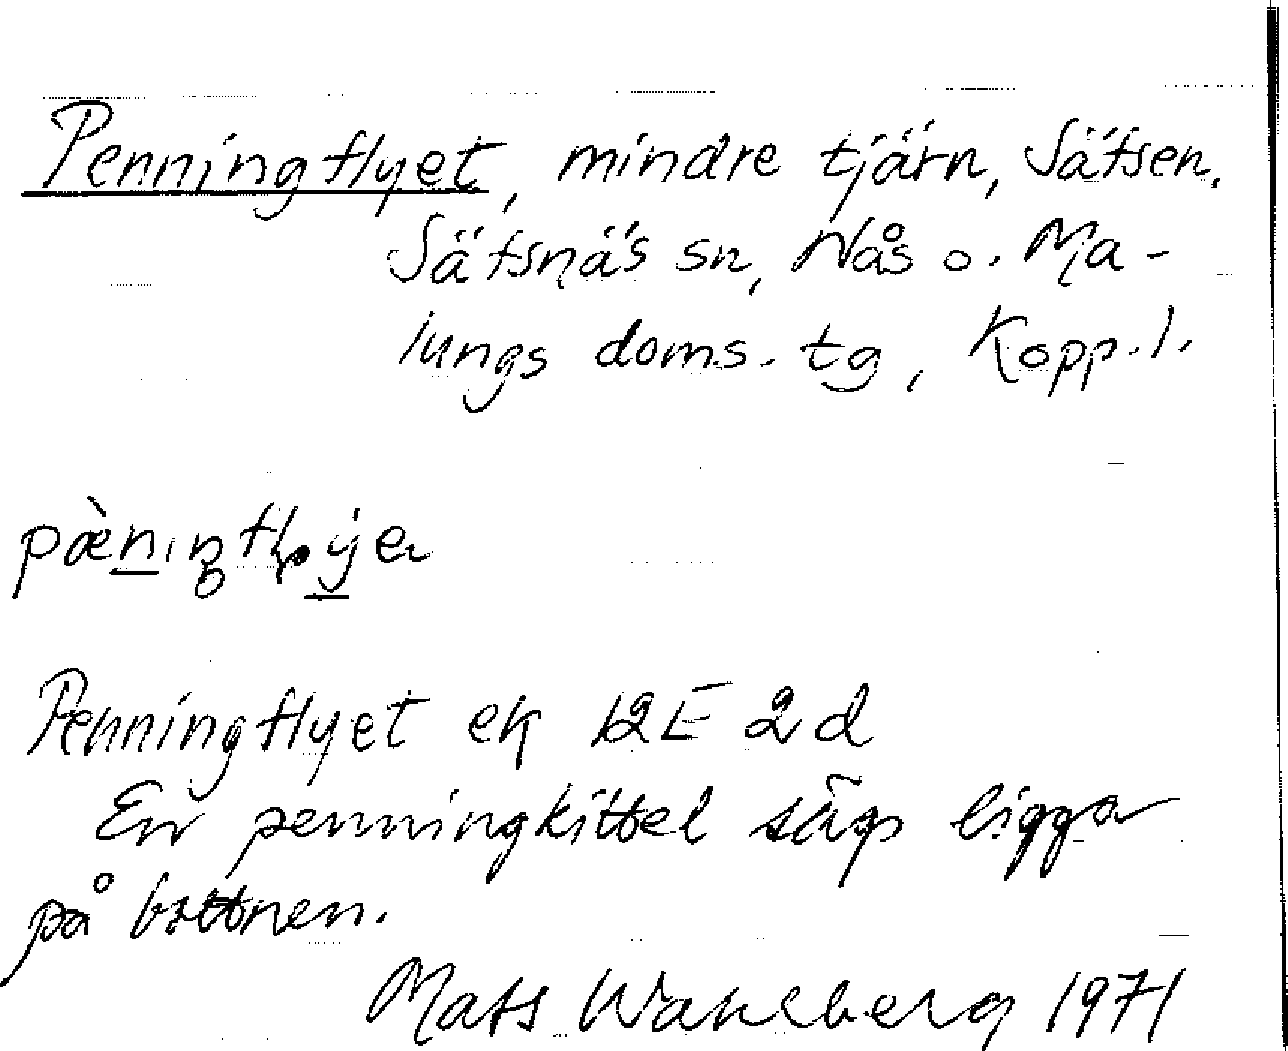 Penningflyet, mindre tjärn, Sätsen,
Säfsnäs sn, Nås o. Ma-
lungs doms. tg, Kopp. l.
Penningflyet ek 12E 2d
En penningkittel sägs ligga
på bottnen.
Mats Wahlberg 1971